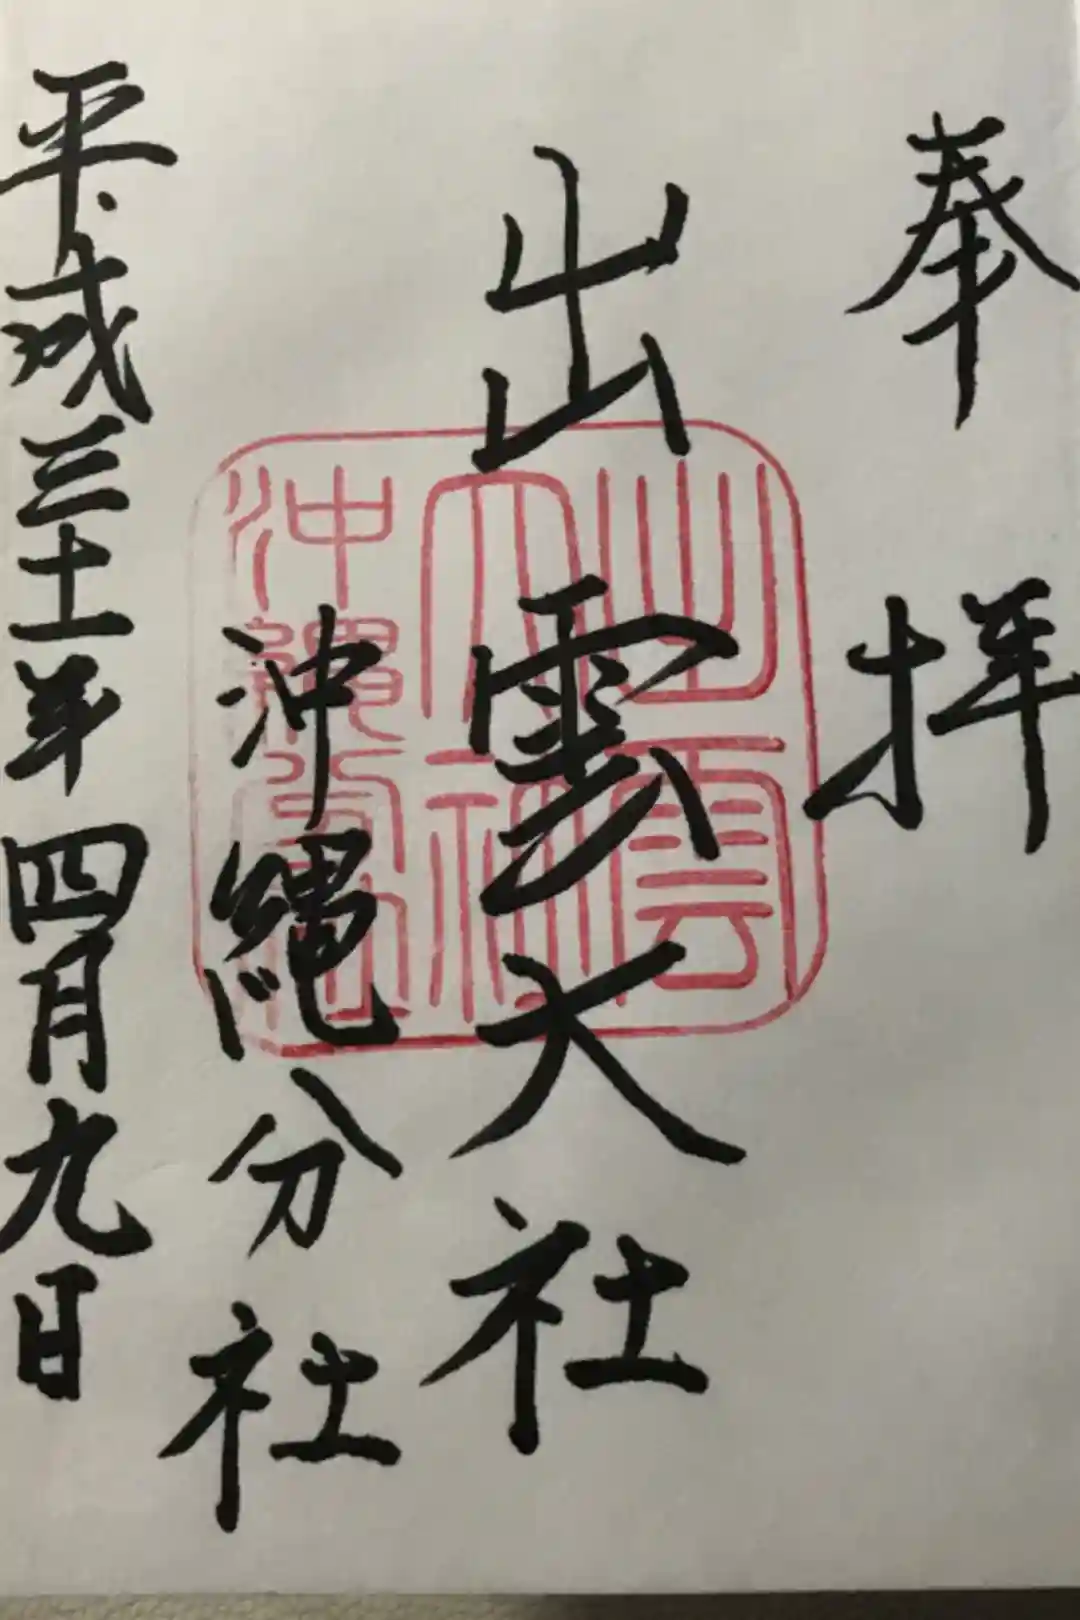 奉拝
出雲大社
沖縄分社
平成三十一年四月九日
出雲
大社
沖縄